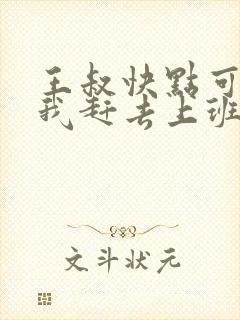 王叔快點可
我赶去上班
文斗状元